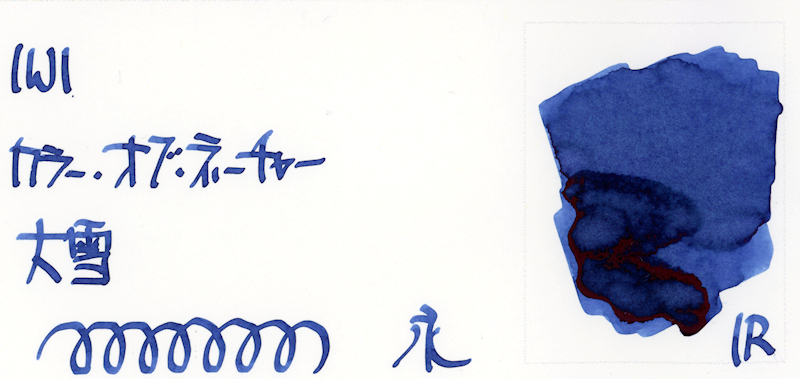 IWI
カラー・オブ・ネーチャー
大雪
永
IR